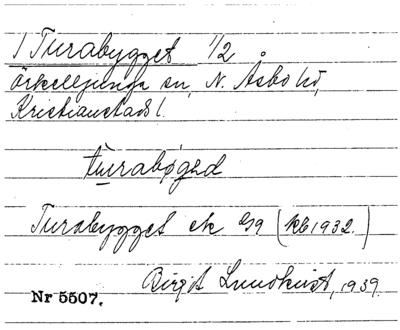 1 Turabygget 1/2
Örkelljunga sn, N. Åsbo hd,
Kristianstads l.
turabøgəd
Turabygget ek G9 (kb 1932.)
Birgit Lundkvist, 1939.
Nr 5507.